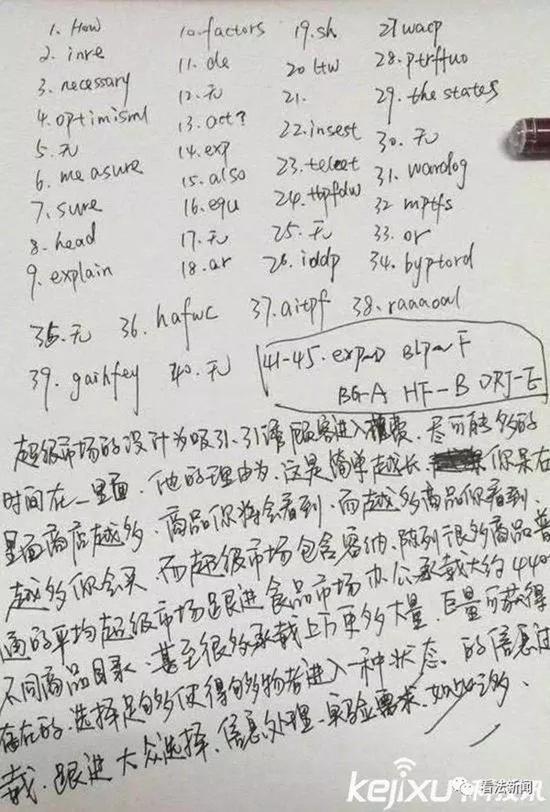 1. How 10. factors 19. sh 27 wacp
2. inre 11. de 20 ltw 28. ptrftuo
3. necessary 12. 无 21. 29. the states
4. optimisml 13. act? 22. insest 30. 无
5. 无 14. exp 23. telect 31. wardog
6. measure 15. also 24. tbpfdw 32 mptfs
7. sure 16. equ 25. 无 33. or
8. head 17. 无 26. iddp 34. byptord
9. explain 18. ar
35. 无 36. hafwc 37. aitpf 38. raaaoal
39. gaihfey 40. 无 41-45. exp-D BLP-F
BG-A HF-B DRJ-E
超级市场的设计为吸引、引诱顾客进入 尽可能多的
时间在一里面. 他的理由为, 这是简单越长 你呆在
里面商店越多. 商品你将会看到. 而越多商品你看到.
越多你会买. 而超级市场包含容纳、陈列很多商品普
通的平均超级市场跟进食品市场办公承载大约440
不同商品目录. 甚至很多承载上万更多大量. 巨量可获得
存在的. 选择足够多使得 多物者进入一种状态. 的信息过
载. 跟进大众选择. 信息处理. 实验需求. 如此之多.
kejixu 看法新闻